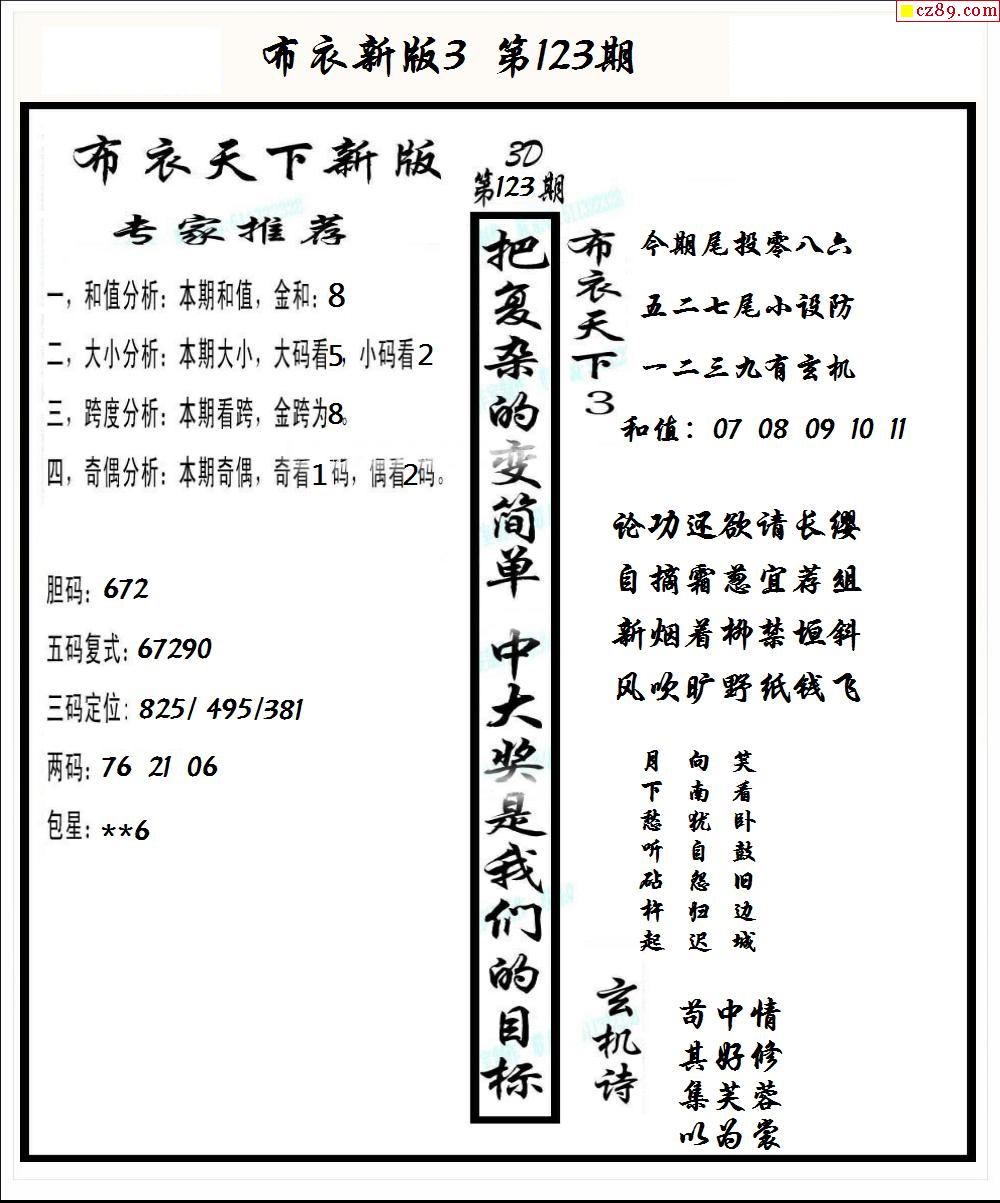 cz89.com
布衣新版3 第123期
布衣天下新版
专家推荐
一，和值分析：本期和值，金和：8
二，大小分析：本期大小，大码看5，小码看2
三，跨度分析：本期看跨，金跨为8。
四，奇偶分析：本期奇偶，奇看1码，偶看2码。
胆码：672
五码复式：67290
三码定位：825/ 495/381
两码：76 21 06
包星：**6
3D
第123期
把复杂的变简单 中大奖是我们的目标
布衣天下3
今期尾投零八六
五二七尾小设防
一二三九有玄机
和值：07 08 09 10 11
论功还欲请长缨
自摘霜葱宜荐组
新烟着柳禁垣斜
风吹旷野纸钱飞
笑看卧鼓旧边城
向南犹自怨归迟
月下愁听砧杵起
玄机诗
苟中情
其好修
集芙蓉
以为裳